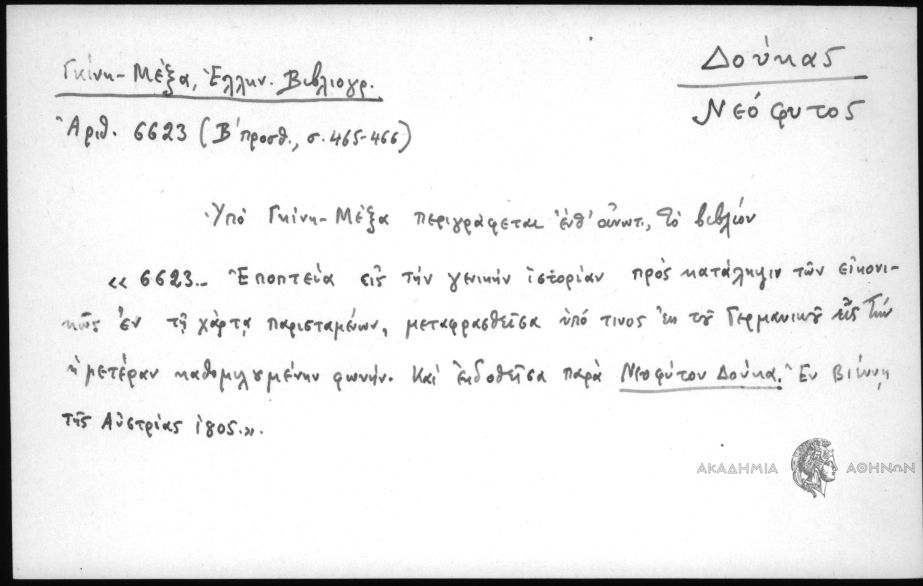 Δούκας
Νεόφυτος
Γκίνη-Μέξα, Ἑλλην. Βιβλιογρ.
Ἀριθ. 6623 (Β' προσθ., σ. 465-466)
Ὑπό Γκίνη-Μέξα περιγράφεται ἐνθ' οὕτω, τό βιβλίον
«6623.- Ἐποπτεία εἰς τήν γενικήν ἱστορίαν πρὸς κατάληψιν τῶν εἰκονι-
κῶς ἐν τῇ χάρτᾳ παρισταμένων, μεταφρασθεῖσα ὑπό τινος ἐκ τοῦ Γερμανικοῦ εἰς τήν
ἡμετέραν καθομιλουμένην φωνήν. Καί ἐκδοθεῖσα παρά Νεοφύτου Δούκα. Ἐν Βιέννῃ
τῆς Αὐστρίας
ΑΚΑΔΗΜΙΑ ΑΘΗΝΩΝ